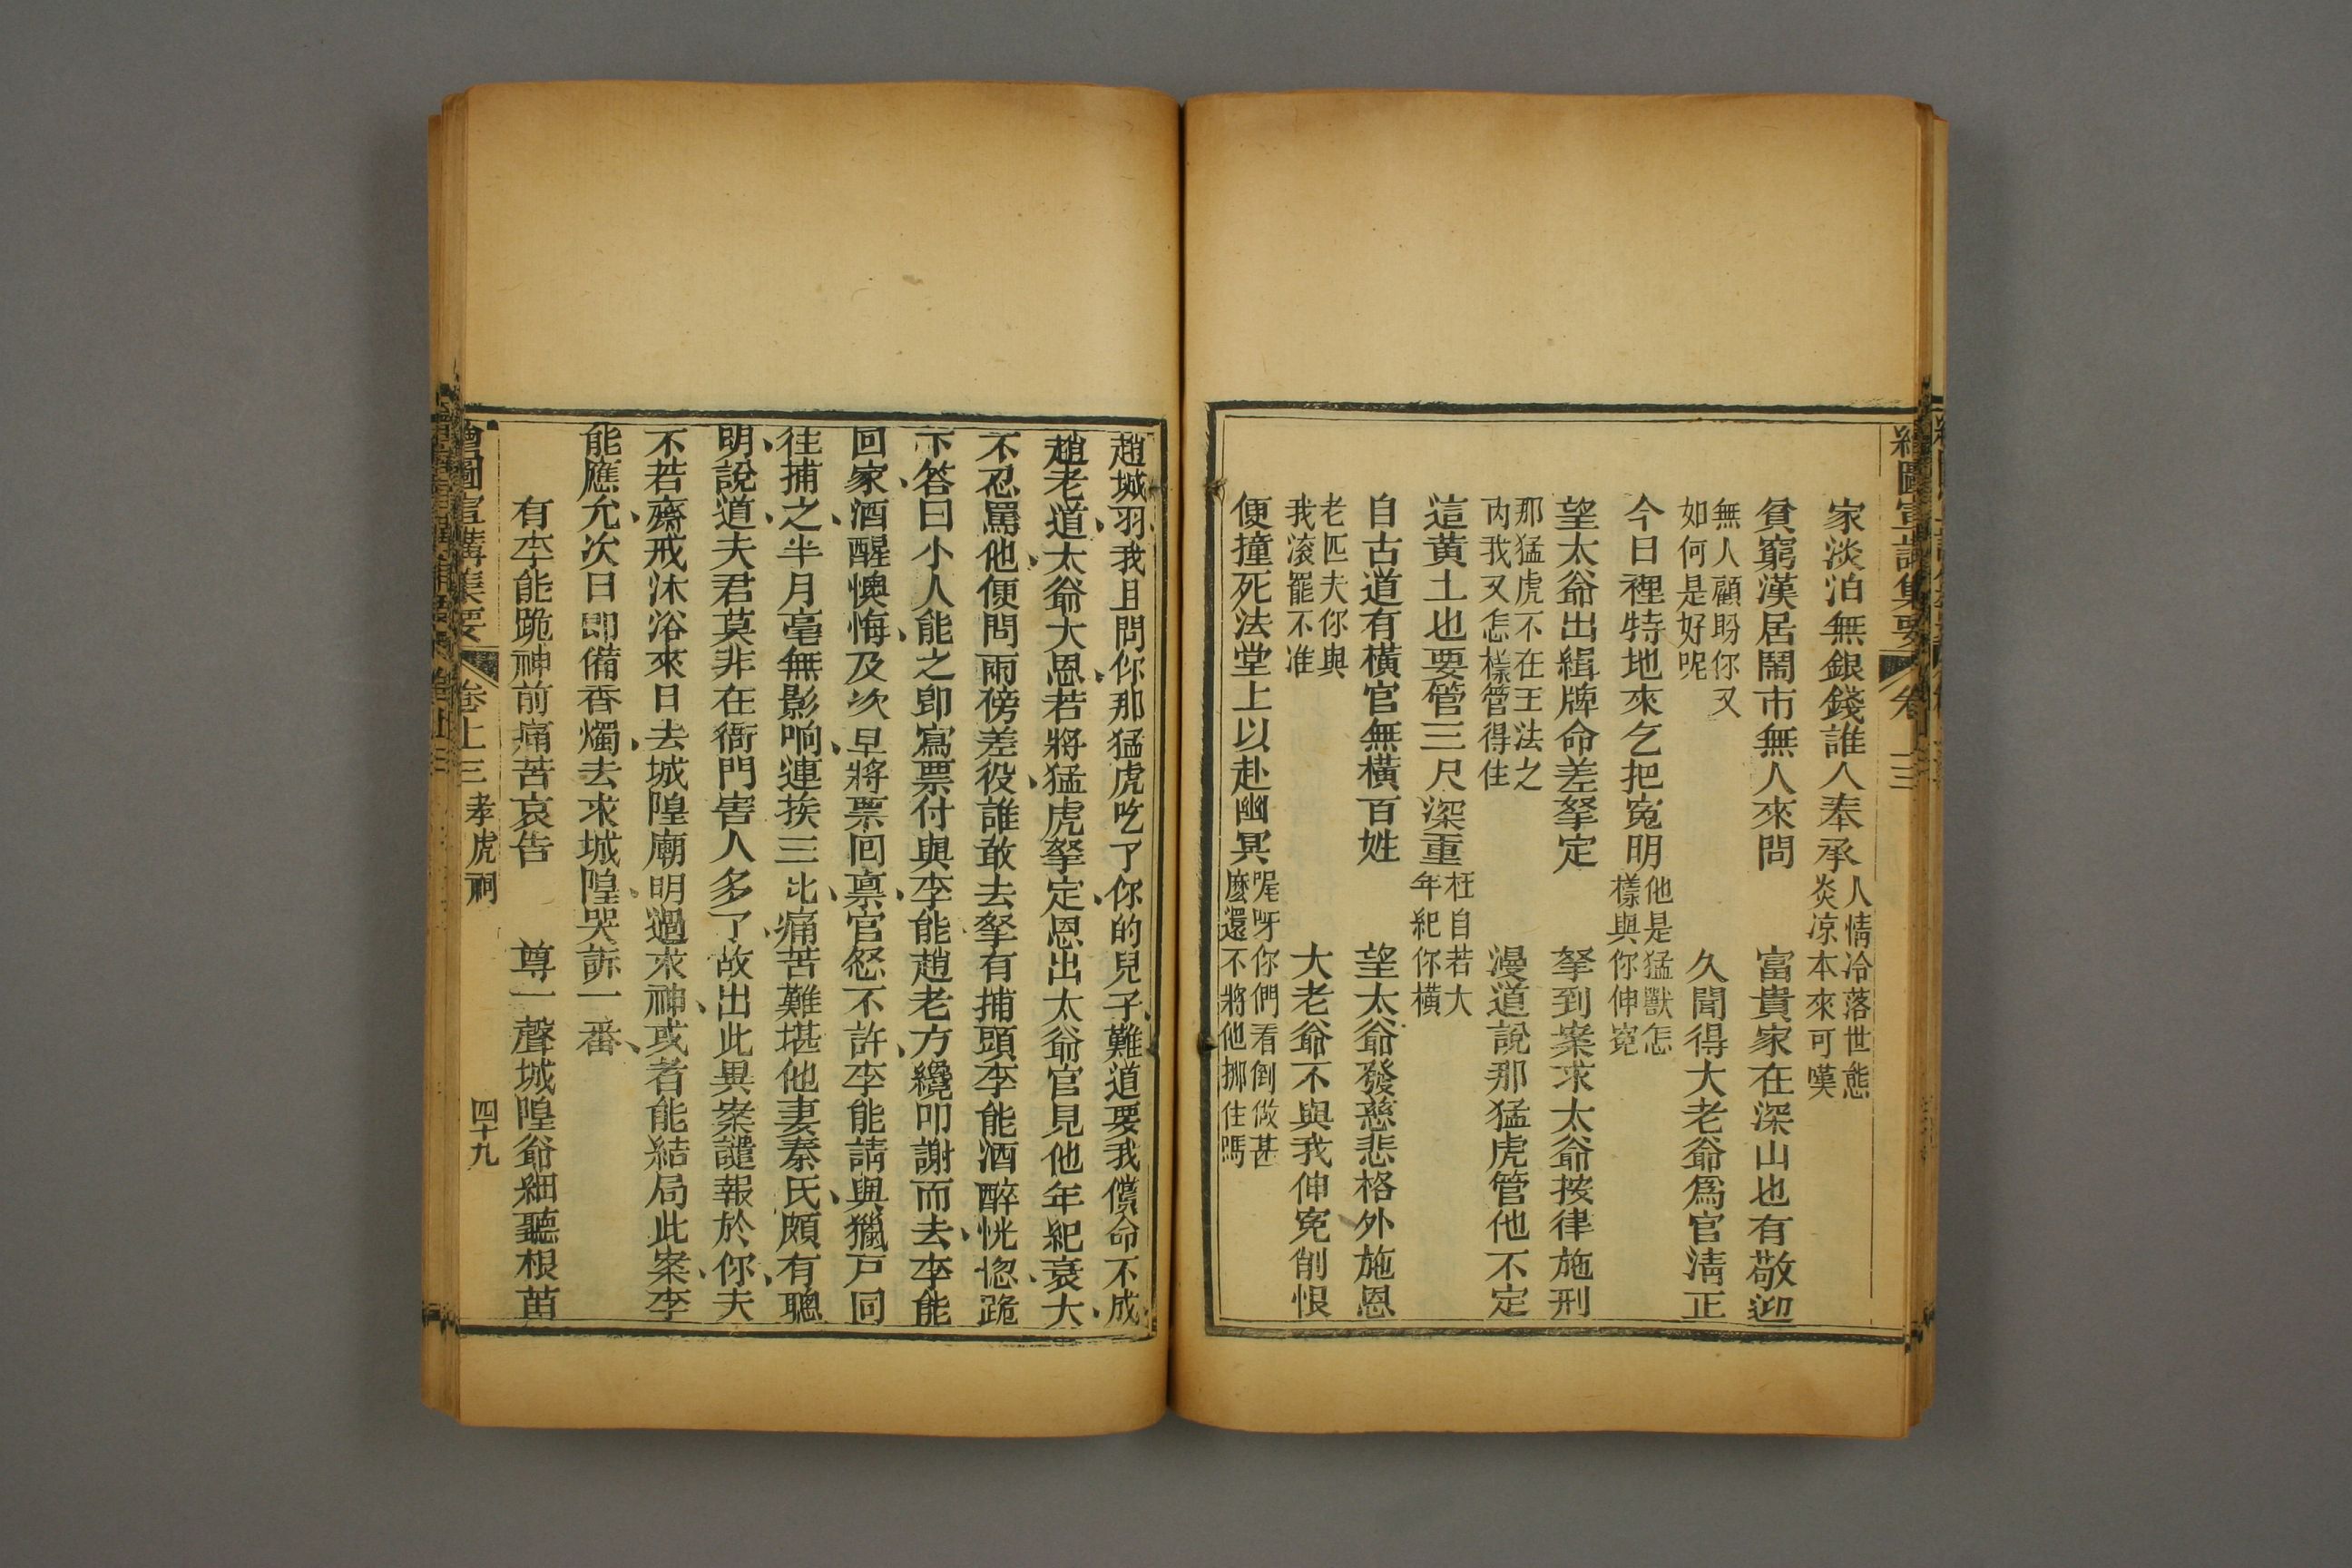 家淡泊無銀錢誰人奉承人情冷落世態炎凉本來可嘆
貧窮漢居鬧市無人來問　富貴家在深山也有敬迎
無人顧盼你又如何是好呢　久聞得大老爺爲官淸正
今日裡特地來乞把寃明他是猛獸怎樣與你伸寃
望太爺出緝牌命差拏定　拏到案求太爺按律施刑
那猛虎不在王法之内我又怎樣管得住　漫道說那猛虎管他不定
這黄土也要管三尺深重枉自若大年紀你橫
自古道有橫官無橫百姓　望太爺發慈悲格外施恩
老匹夫你與我滚罷不准　大老爺不與我伸寃削恨
便撞死法堂上以赴幽冥㕧呀你們看倒做甚麼還不將他挷住嗎
趙城羽我且問你那猛虎吃了你的兒子難道要我償命不成
趙老道太爺大恩若將猛虎拏定恩出太爺官見他年紀衰大
不忍罵他便問兩傍差役誰敢去拏有捕頭李能酒醉恍惚跪
下答曰小人能之卽寫票付與李能趙老方纔叩謝而去李能
回家酒醒懊悔及次早將票回禀官怒不許李能請與獵戸同
往捕之半月毫無影响連挨三比痛苦難堪他妻秦氏頗有聰
明說道夫君莫非在衙門害人多了故出此異案譴報於你夫
不若齋戒沐浴來日去城隍廟明過求神或者能結局此案李
能應允次日卽備香燭去求城隍哭訴一番
有李能跪神前痛苦哀告　尊一聲城隍爺細聽根苗
繪圖宣講集要　卷上三　孝虎祠　四十九